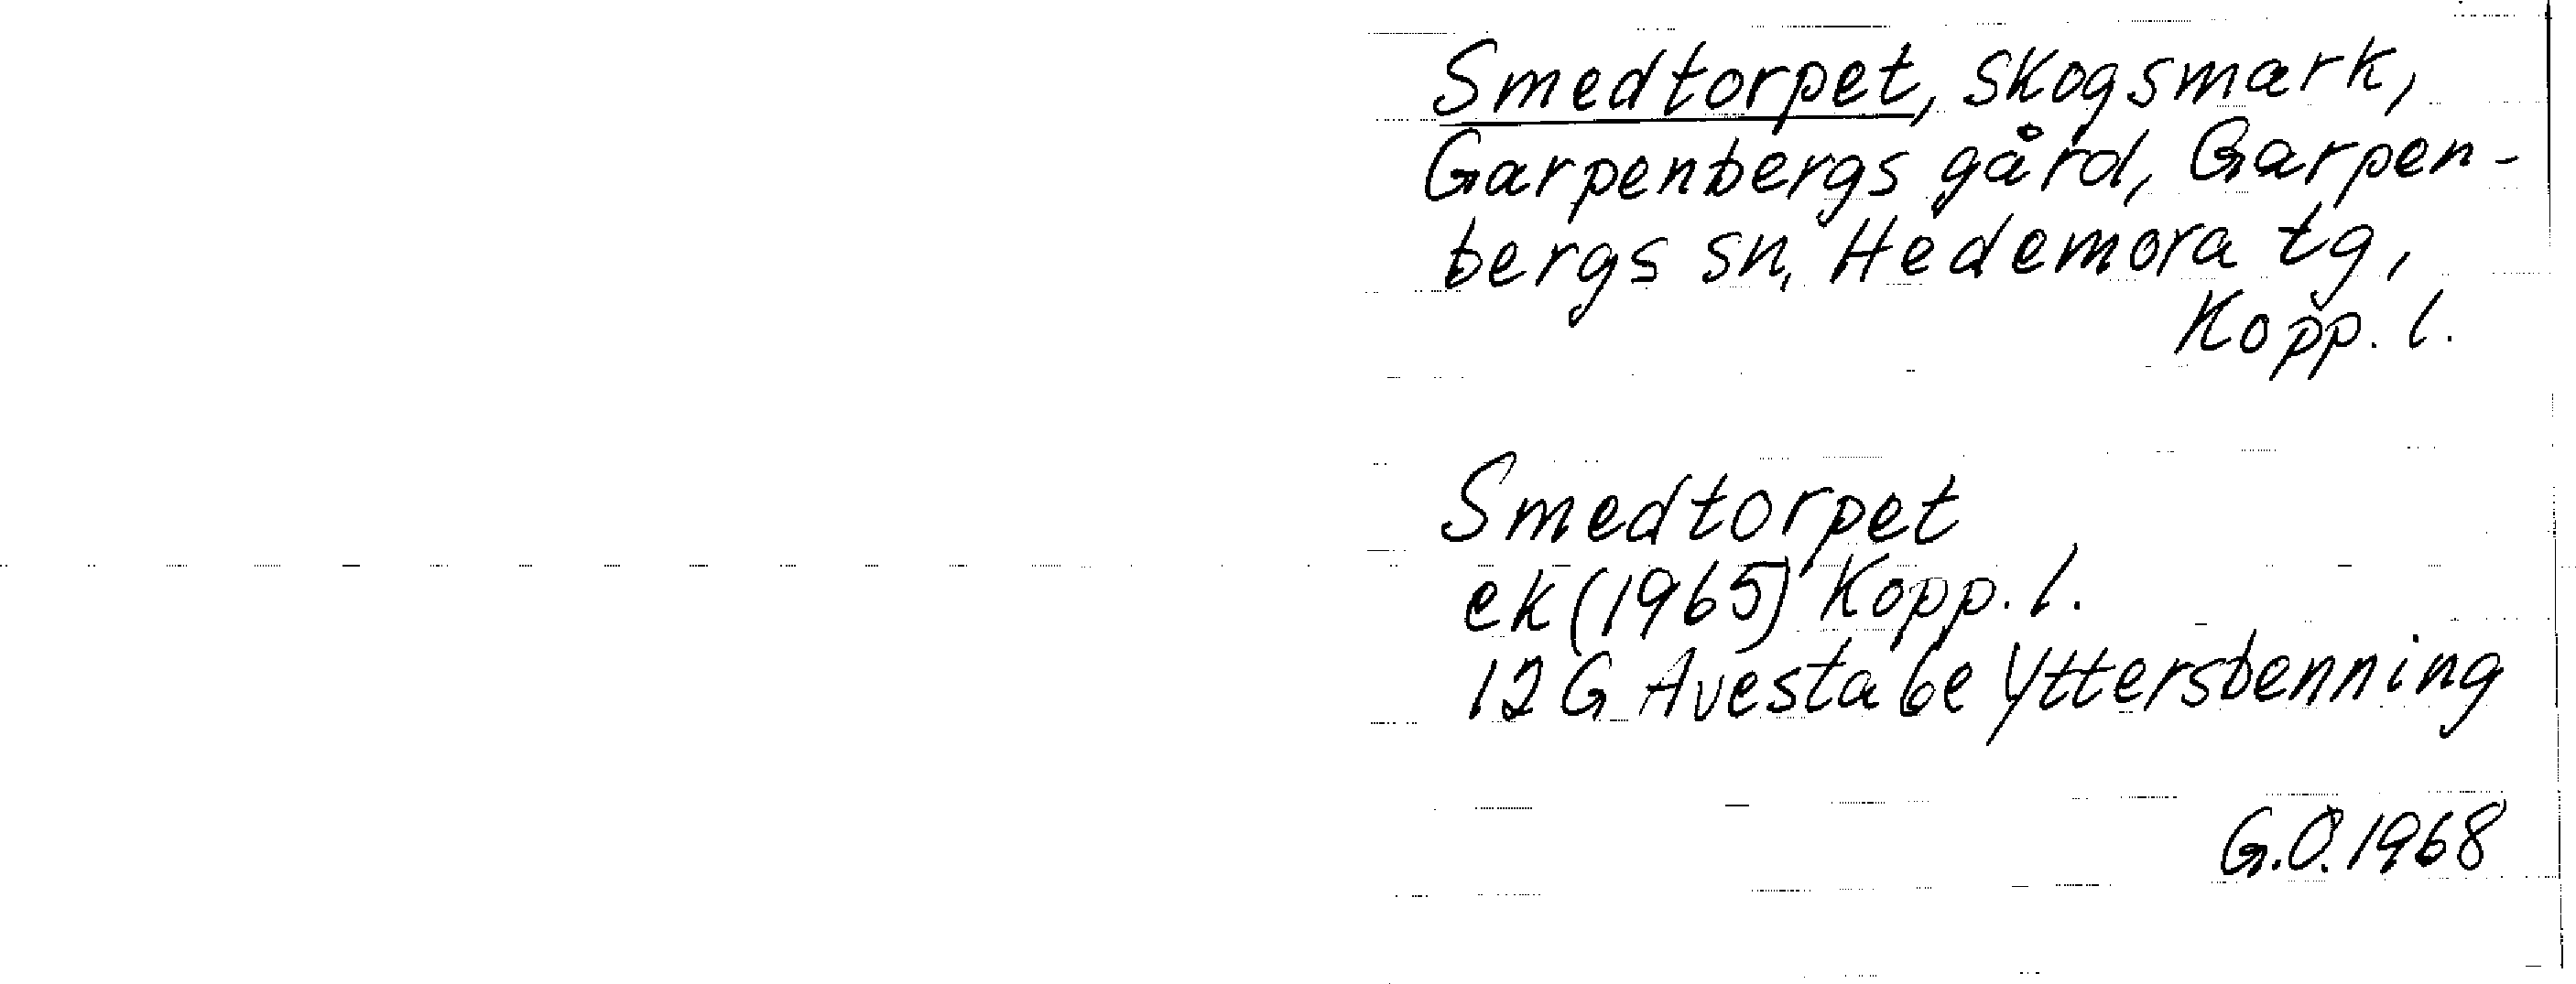 Smedtorpet, skogsmark,
Garpenbergs gård, Garpen-
bergs sn, Hedemora tg,
Kopp. l.
Smedtorpet
ek (1965) Kopp. l.
12 G Avesta 6e Yttersbenning
G.O. 1968